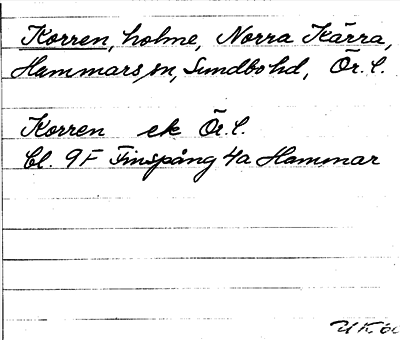 Korren, holme, Norra Kärra,
Hammars sn, Sundbo hd, Ör. l.
Korren ek Ör. l.
bl. 9F Finspång 4a Hammar